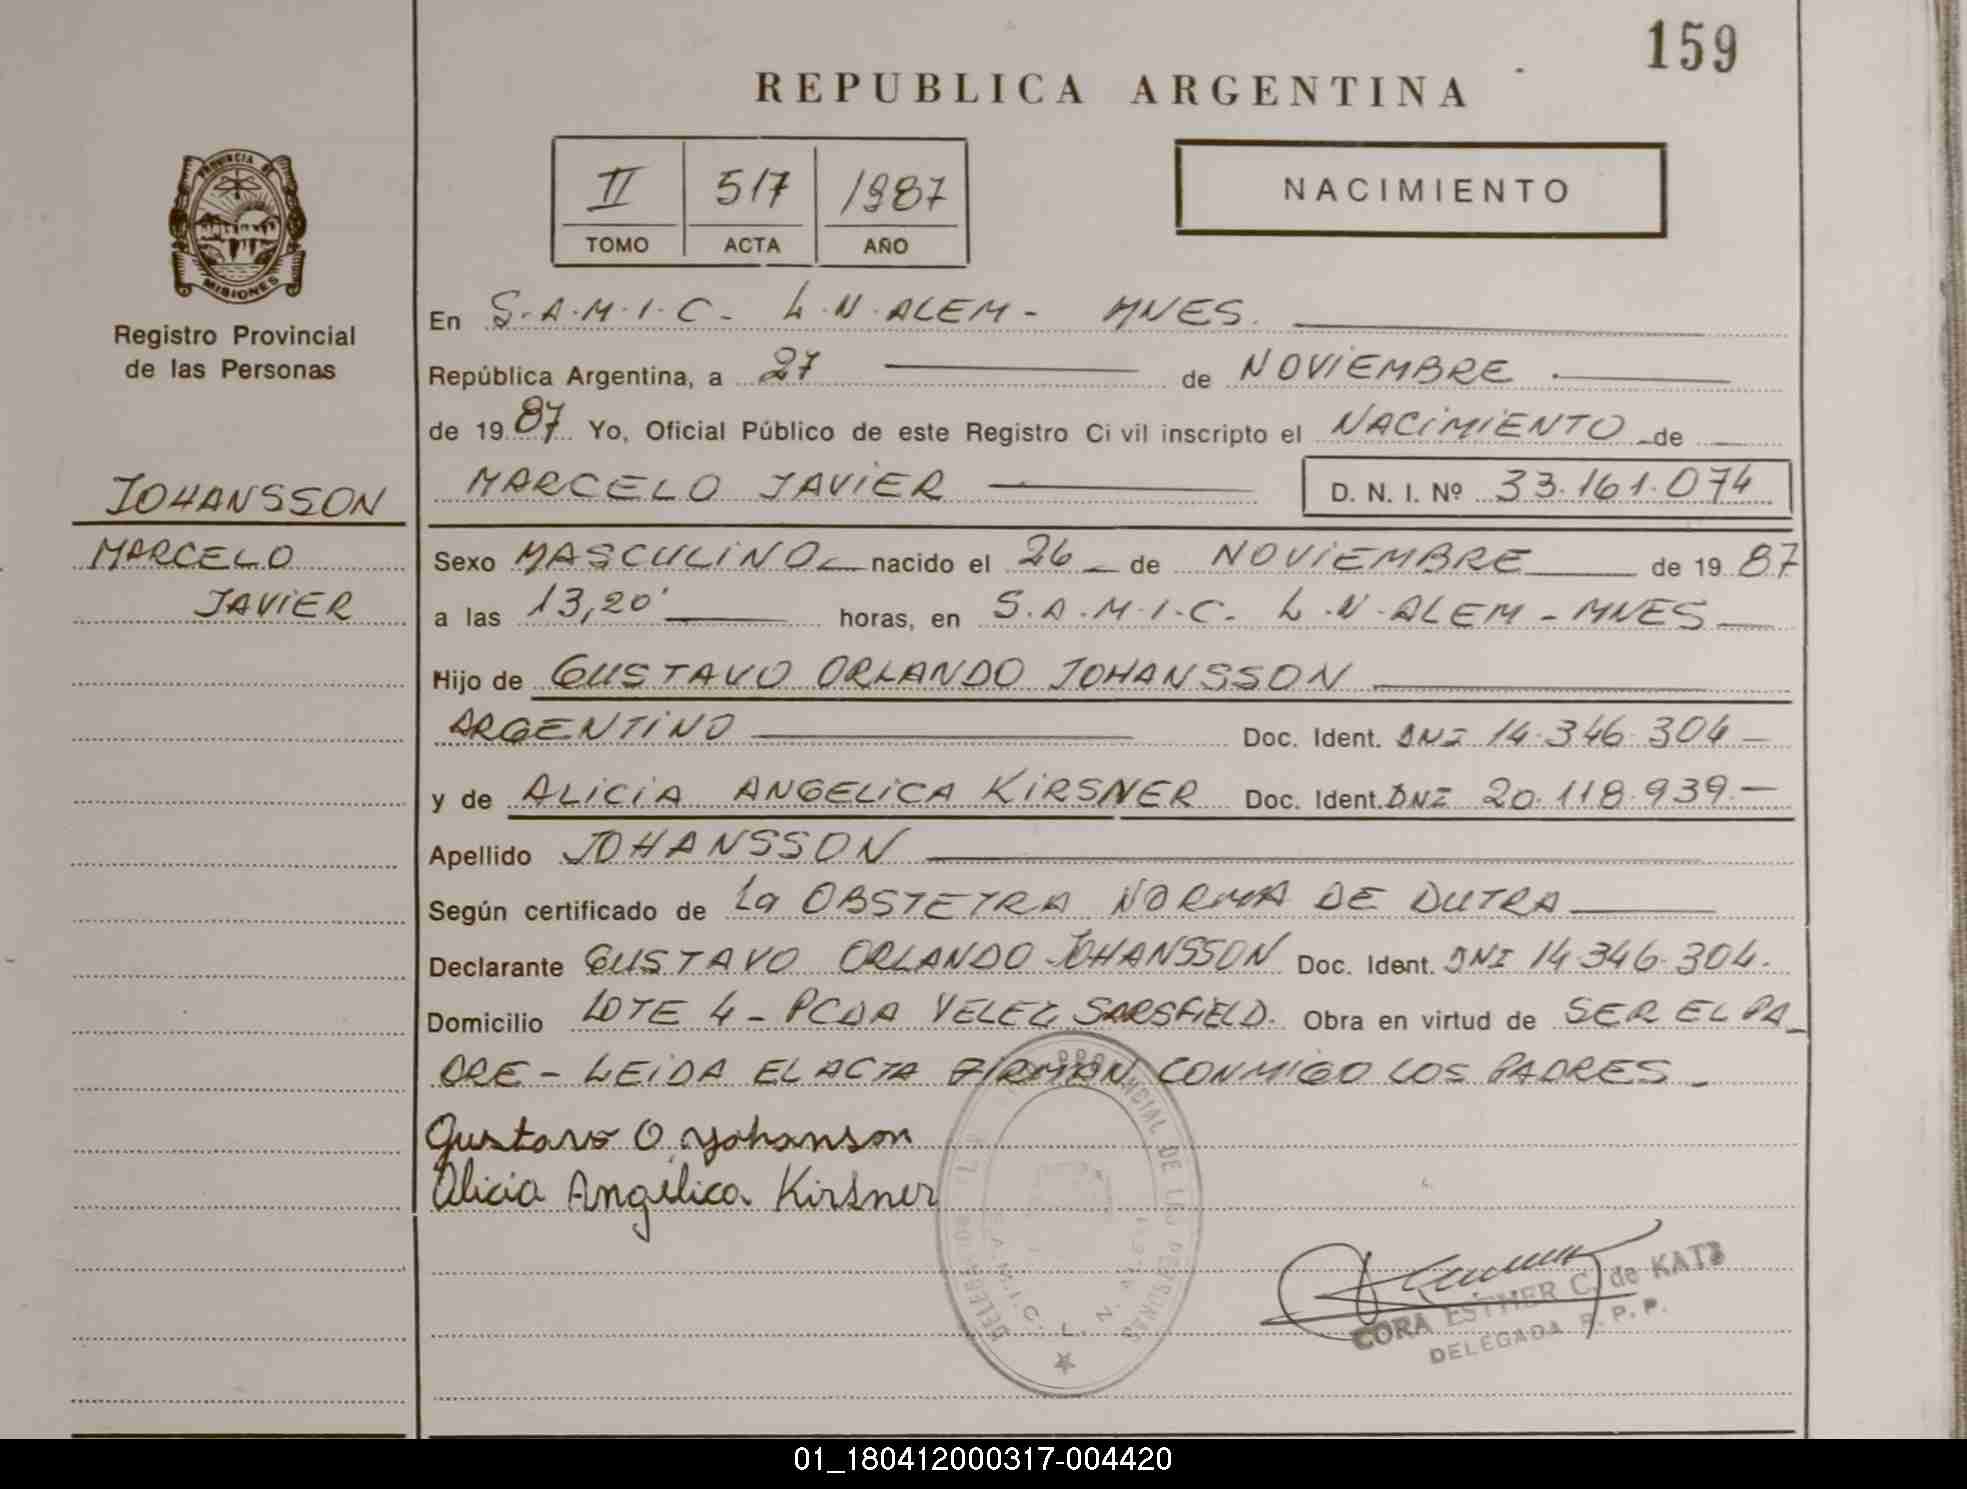 159
REPUBLICA ARGENTINA
II 517 1987
TOMO ACTA AÑO
NACIMIENTO
PROVINCIA DE
MISIONES
Registro Provincial
de las Personas
JOHANSSON
MARCELO
JAVIER
En S.A.M.I.C. - L.N. ALEM - MNES.
República Argentina, a 27 de NOVIEMBRE
de 1987 Yo, Oficial Público de este Registro Civil inscripto el NACIMIENTO de
MARCELO JAVIER D. N. I. Nº 33.161.074
Sexo MASCULINO nacido el 26 de NOVIEMBRE de 1987
a las 13,20' horas, en S.A.M.I.C. - L.N. ALEM - MNES
Hijo de GUSTAVO ORLANDO JOHANSSON
ARGENTINO Doc. Ident. DNI 14.346.304 -
y de ALICIA ANGELICA KIRSNER Doc. Ident. DNI 20.118.939.-
Apellido JOHANSSON
Según certificado de La OBSTETRA NORMA DE DUTRA
Declarante GUSTAVO ORLANDO JOHANSSON Doc. Ident. DNI 14.346.304.
Domicilio LOTE 4 - PCDA VELEZ SARSFIELD. Obra en virtud de SER EL PA_
DRE - LEIDA EL ACTA FIRMAN CONMIGO LOS PADRES -
Gustavo O. Yohanson
Alicia Angélica Kirsner
PROVINCIAL DE LAS PERSONAS
CORA ESTHER C. de KATZ
DELEGADA R. P. P.
01_180412000317-004420